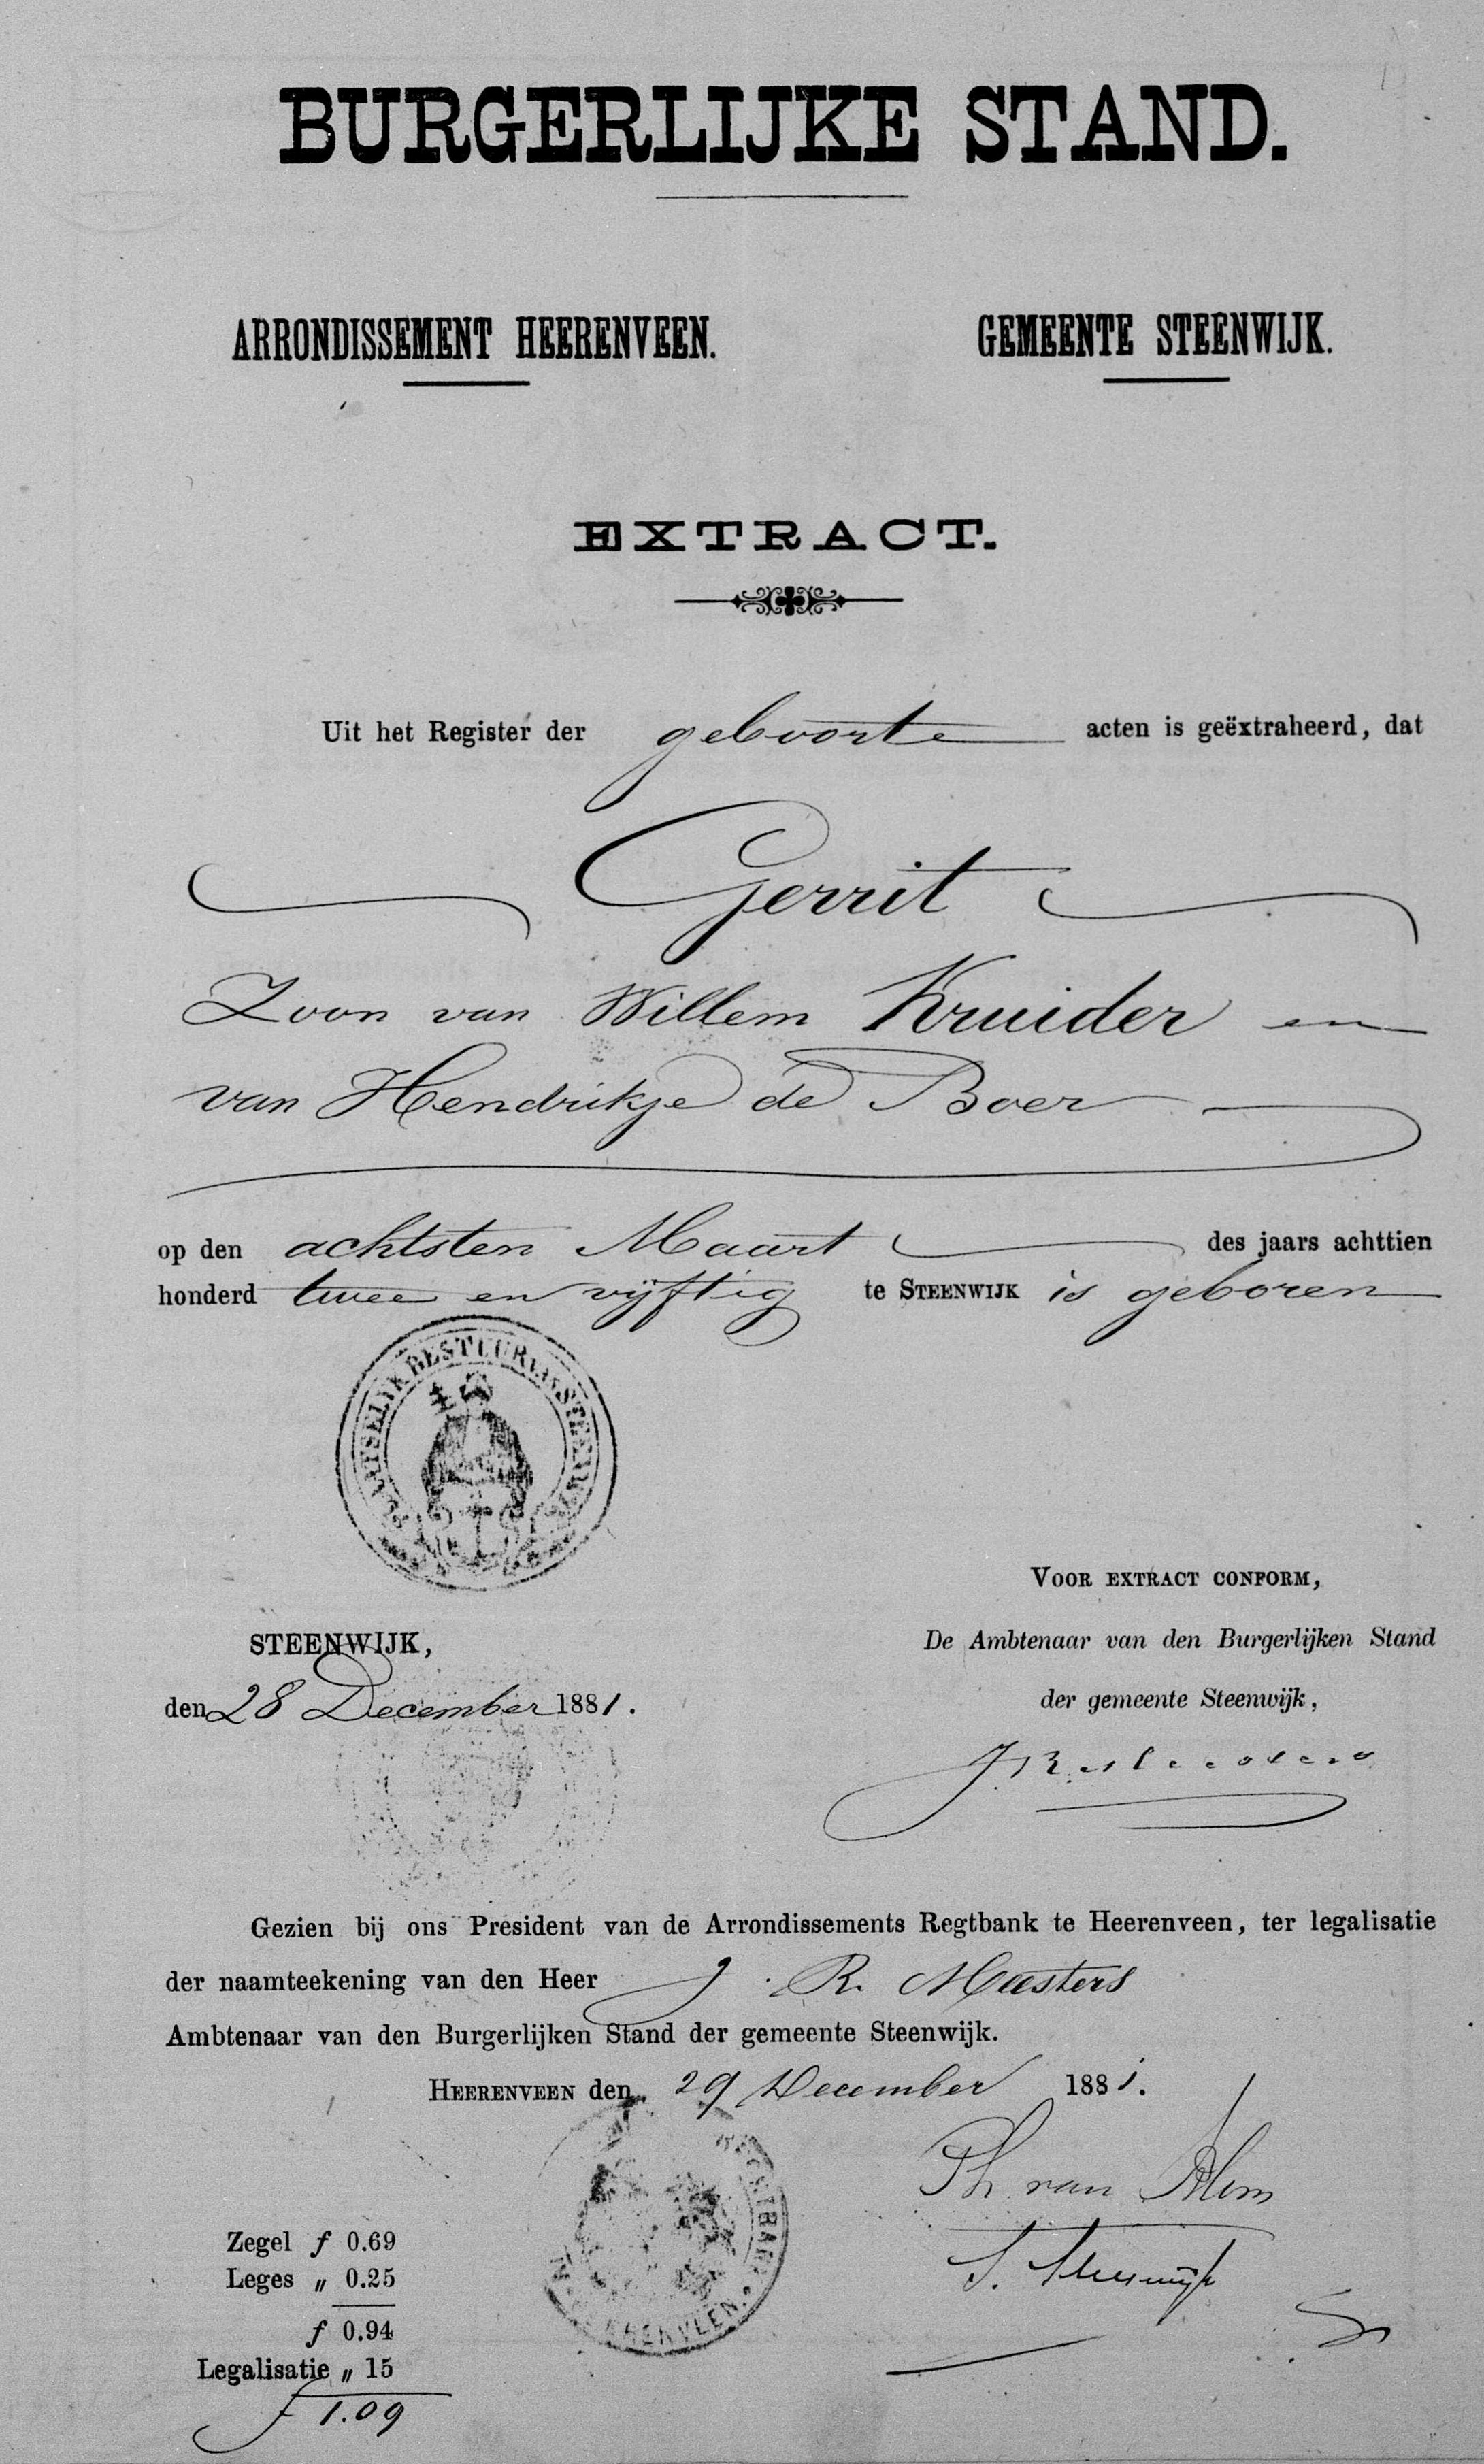 BURGERLIJKE STAND.
ARRONDISSEMENT HEERENVEEN.
GEMEENTE STEENWIJK.
EXTRACT.
Uit het Register der geboorte acten is geëxtraheerd, dat
Gerrit
Zoon van Willem Kruider en
van Hendrikje de Boer
op den achtsten Maart des jaars achttien
honderd twee en vijftig te STEENWIJK is geboren
BESTUUR
VOOR EXTRACT CONFORM,
STEENWIJK,
De Ambtenaar van den Burgerlijken Stand
den 28 December 1881.
der gemeente Steenwijk,
Gezien bij ons President van de Arrondissements Regtbank te Heerenveen, ter legalisatie
der naamteekening van den Heer J. R. Meesters
Ambtenaar van den Burgerlijken Stand der gemeente Steenwijk.
HEERENVEEN den 29 December 1881.
HEERENVEEN
Ph van
Zegel f 0.69
Leges " 0.25
f 0.94
Legalisatie " 15
f 1.09